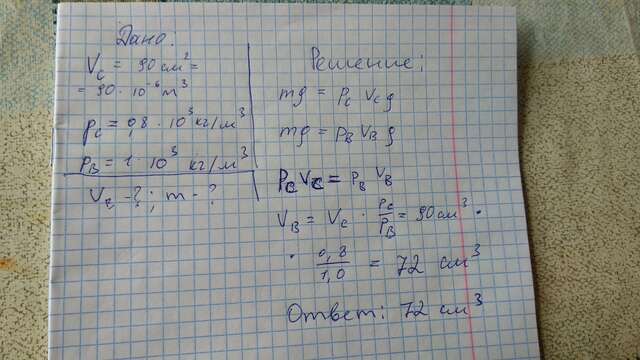 Дано:
Vс = 90 см³ =
= 90 · 10⁻⁶ м³
ρс = 0,8 · 10³ кг/м³
ρв = 1 · 10³ кг/м³
Vв - ?; m - ?
Решение:
mg = ρс Vс g
mg = ρв Vв g
ρс Vс = ρв Vв
Vв = Vс · ρс/ρв = 90 см³ ·
· 0,8/1,0 = 72 см³
Ответ: 72 см³